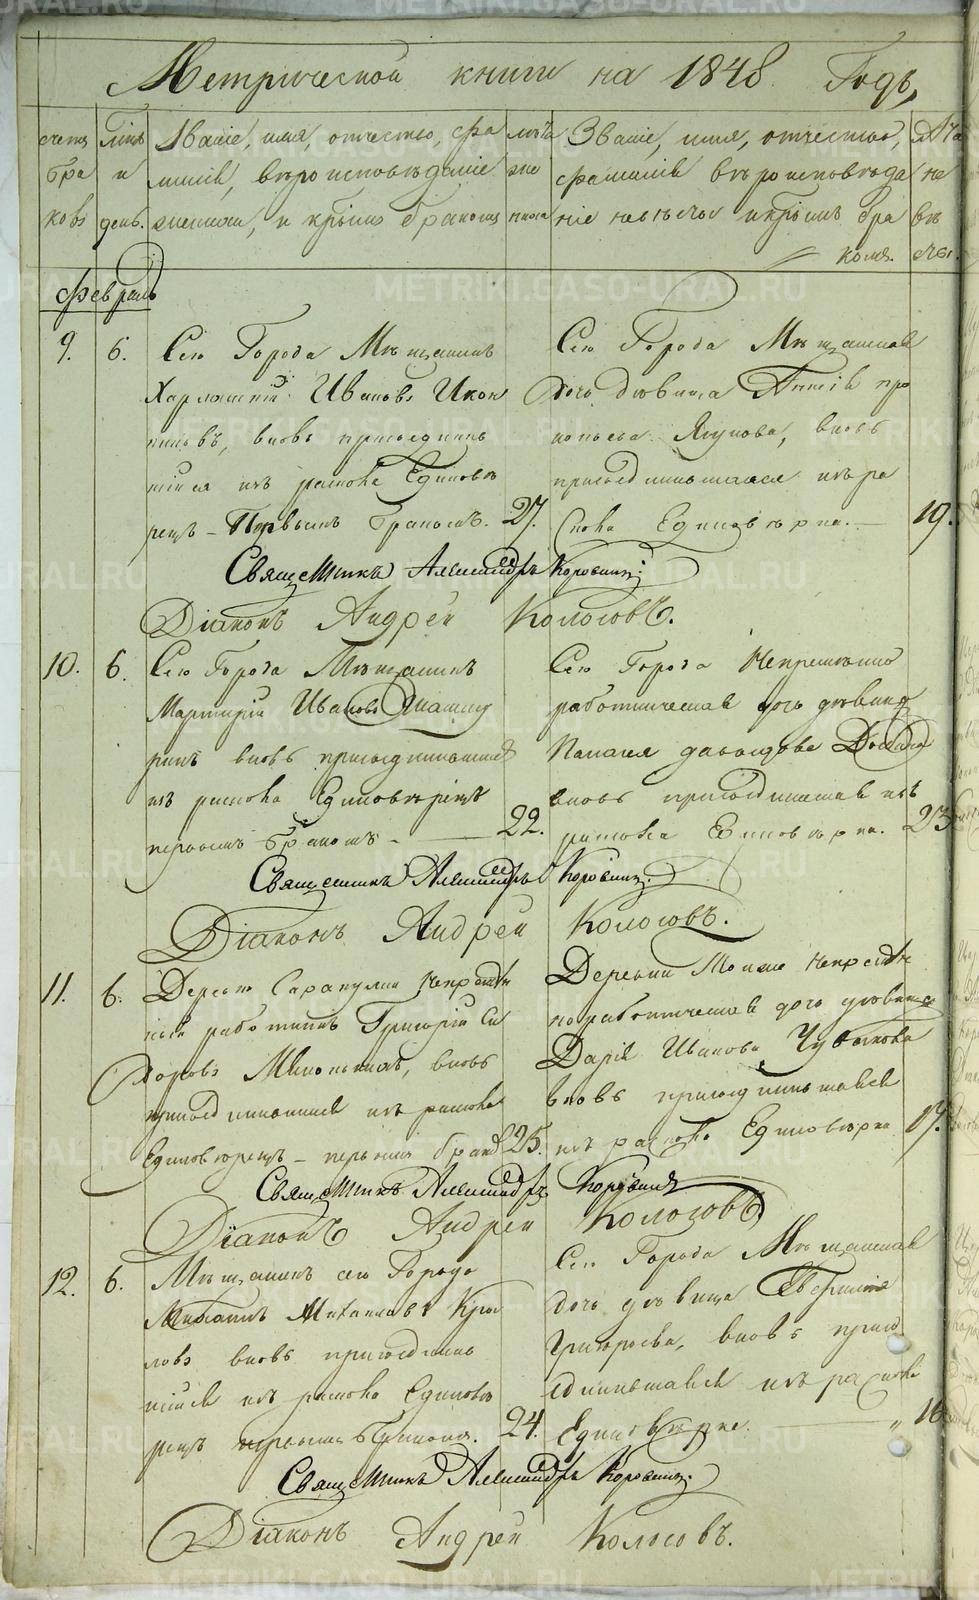 Метрической книги на 1848 Годъ,
счетъ бра ковъ
день.
Званіе, имя, отчество, фа
миліи, вѣроисповѣданіе
жениха, и крымъ бракомъ
Званіе, имя, отчество,
фамилія вѣроисповѣда
ніе невѣсты бра
комъ.
Февраль
9. 6. Сего Города Мѣщанинъ
Харлампій Ивановъ Икон
никовъ, вновь присоединив
шійся изъ раскола Единовѣ
рецъ – Первымъ бракомъ. 27.
Сего Города Мѣщанская
дочь дѣвица про
копьева Ягунова, вновь
присоединившаяся изъ ра
скола Единовѣрка. 19.
Священникъ Александръ Коровинъ
Діаконъ Андрей Колосовъ.
10. 6. Сего Города Мѣщанинъ
Мартирій Ивановъ
вновь присоединившійся
изъ раскола Единовѣрецъ
первымъ бракомъ. 22.
Сего Города Непремѣнно
работническая дочь дѣвица
Пелагея Давыдова
вновь присоединившая изъ
раскола Единовѣрка. 23
Священникъ Александръ Коровинъ.
Діаконъ Андрей Колосовъ.
11. 6. Деревни Сарапулки Непремѣн
ный работникъ Григорій Си
доровъ вновь
присоединившійся изъ раскола
Единовѣрецъ – первымъ брако 25.
Деревни Непремѣн
ноработническая дочь дѣвица
Дарія Иванова
вновь присоединившаяся
изъ раскола Единовѣрка 17.
Священникъ Александръ Коровинъ
Діаконъ Андрей Колосовъ.
12. 6. Мѣщанинъ сего Города
Михайловъ Кры
ловъ вновь присоединив
шійся изъ раскола Единовѣ
рецъ первымъ бракомъ. 24.
Сего Города Мѣщанская
дочь дѣвица Евгенія
Григорьева, вновь присо
единившаяся изъ раскола
Единовѣрка. 18
Священникъ Александръ Коровинъ.
Діаконъ Андрей Колосовъ.
METRIKI.GASO-URAL.RU